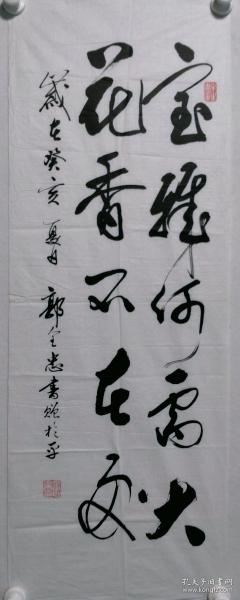 室雅何需大
花香不在多
岁在癸亥夏月 郭全忠书赠于平
孔夫子旧书网